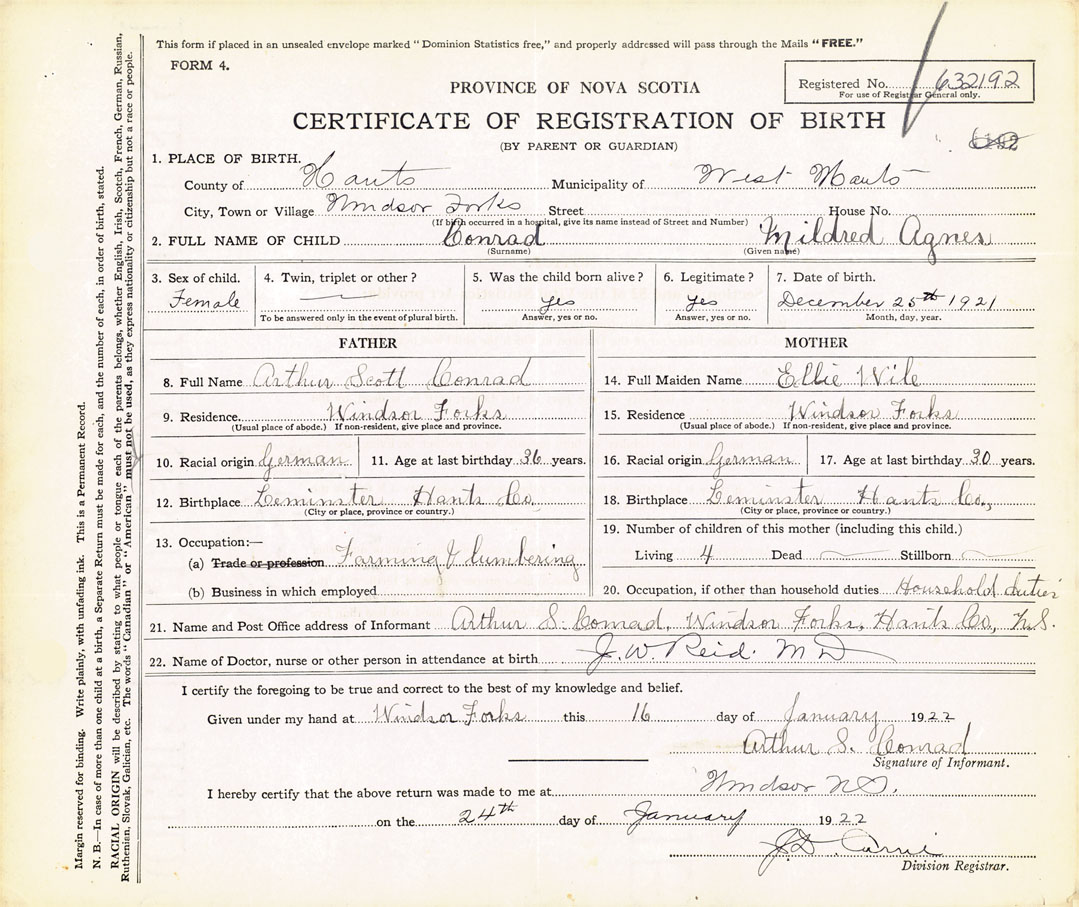 This form if placed in an unsealed envelope marked "Dominion Statistics free," and properly addressed will pass through the Mails "FREE."
FORM 4.
Registered No. 632192
For use of Registrar General only.
PROVINCE OF NOVA SCOTIA
CERTIFICATE OF REGISTRATION OF BIRTH
(BY PARENT OR GUARDIAN)
1. PLACE OF BIRTH.
County of Hants Municipality of West Hants
City, Town or Village Windsor Forks Street House No.
(If birth occurred in a hospital, give its name instead of Street and Number)
2. FULL NAME OF CHILD Conrad Mildred Agnes
(Surname) (Given name)
3. Sex of child. 4. Twin, triplet or other? 5. Was the child born alive? 6. Legitimate? 7. Date of birth.
Female yes yes December 25th 1921
To be answered only in the event of plural birth. Answer, yes or no. Answer, yes or no. Month, day, year.
FATHER
8. Full Name Arthur Scott Conrad
9. Residence. Windsor Forks
(Usual place of abode.) If non-resident, give place and province.
10. Racial origin German 11. Age at last birthday 36 years.
12. Birthplace Leminster Hants Co
(City or place, province or country.)
13. Occupation:—
(a) Trade or profession Farming & lumbering
(b) Business in which employed
MOTHER
14. Full Maiden Name Ellie Wile
15. Residence Windsor Forks
(Usual place of abode.) If non-resident, give place and province.
16. Racial origin German 17. Age at last birthday 30 years.
18. Birthplace Leminster Hants Co.,
(City or place, province or country.)
19. Number of children of this mother (including this child.)
Living 4 Dead Stillborn
20. Occupation, if other than household duties Household duties
21. Name and Post Office address of Informant Arthur S. Conrad, Windsor Forks, Hants Co., N.S.
22. Name of Doctor, nurse or other person in attendance at birth J. W. Reid. M D
I certify the foregoing to be true and correct to the best of my knowledge and belief.
Given under my hand at Windsor Forks this 16 day of January 1922
Arthur S. Conrad
Signature of Informant.
I hereby certify that the above return was made to me at Windsor N.S.
on the 24th day of January 1922
Division Registrar.
Margin reserved for binding. Write plainly, with unfading ink. This is a Permanent Record.
N. B.—In case of more than one child at a birth, a Separate Return must be made for each, and the number of each, in order of birth, stated.
RACIAL ORIGIN will be described by stating to what people or tongue each of the parents belongs, whether English, Irish, Scotch, French, German, Russian,
Ruthenian, Slovak, Galician, etc. The words "Canadian" or "American" must not be used, as they express nationality or citizenship but not a race or people.